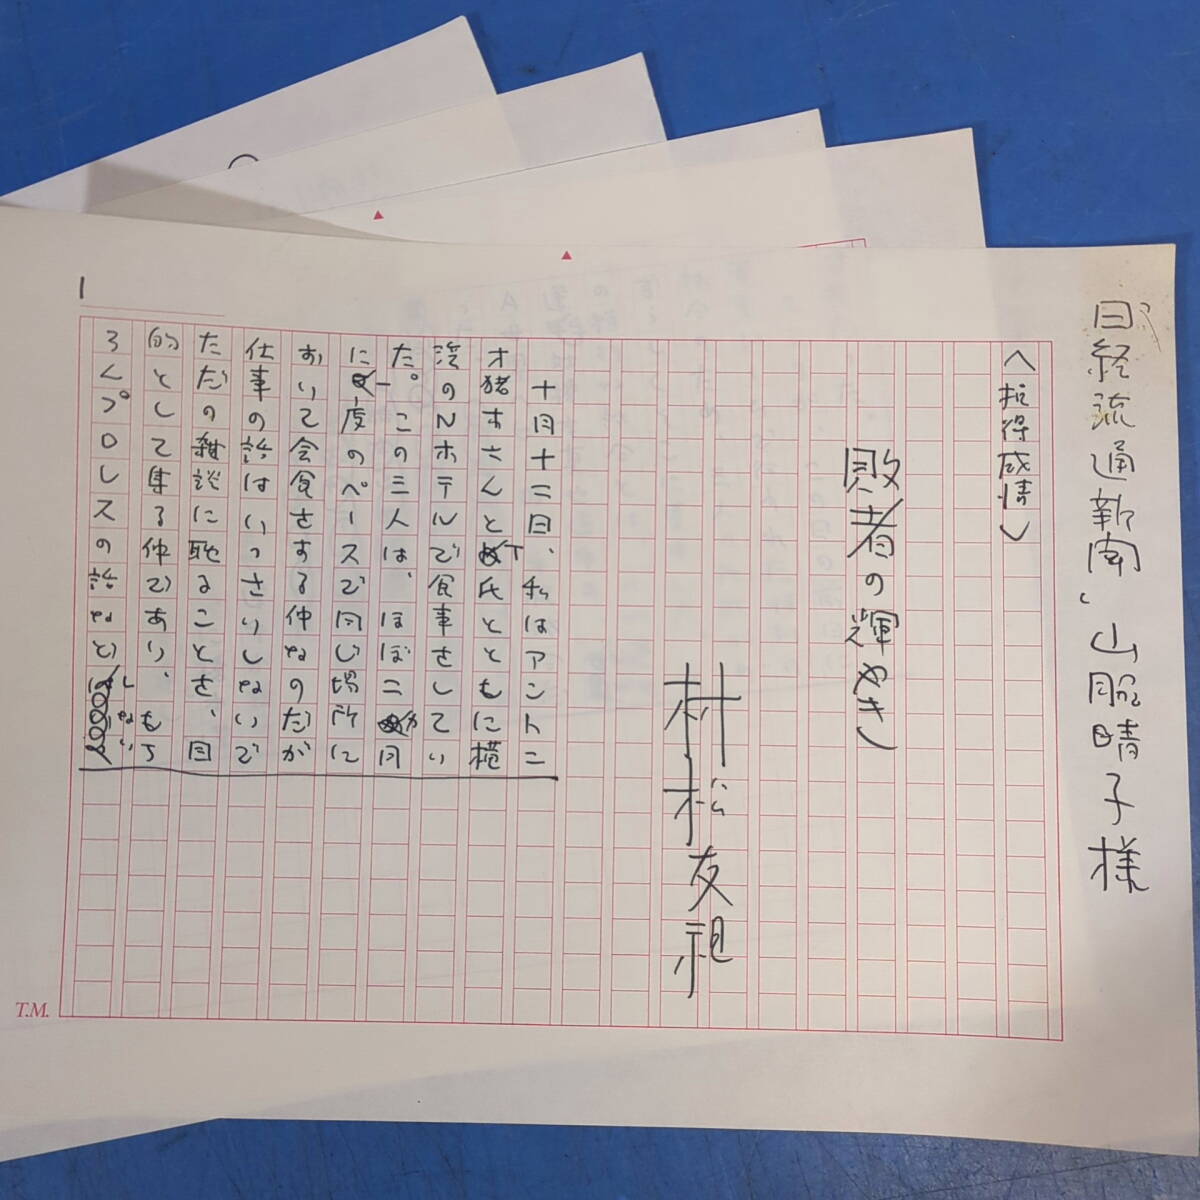 日経流通新聞、山服晴子様
〈拡得感情〉
敗者の輝やき
村松友視
十月十二日、私はアントニ
オ猪木さんとT氏とともに横
浜のNホテルで食事をしてい
た。この三人は、ほぼ二か月
に一度のペースで同じ場所に
おいて会食をする仲なのだが
仕事の話はいっさいしないで
ただの雑談に耽ることを、目
的として集る仲であり、もち
ろんプロレスの話など
しない
1
T.M.